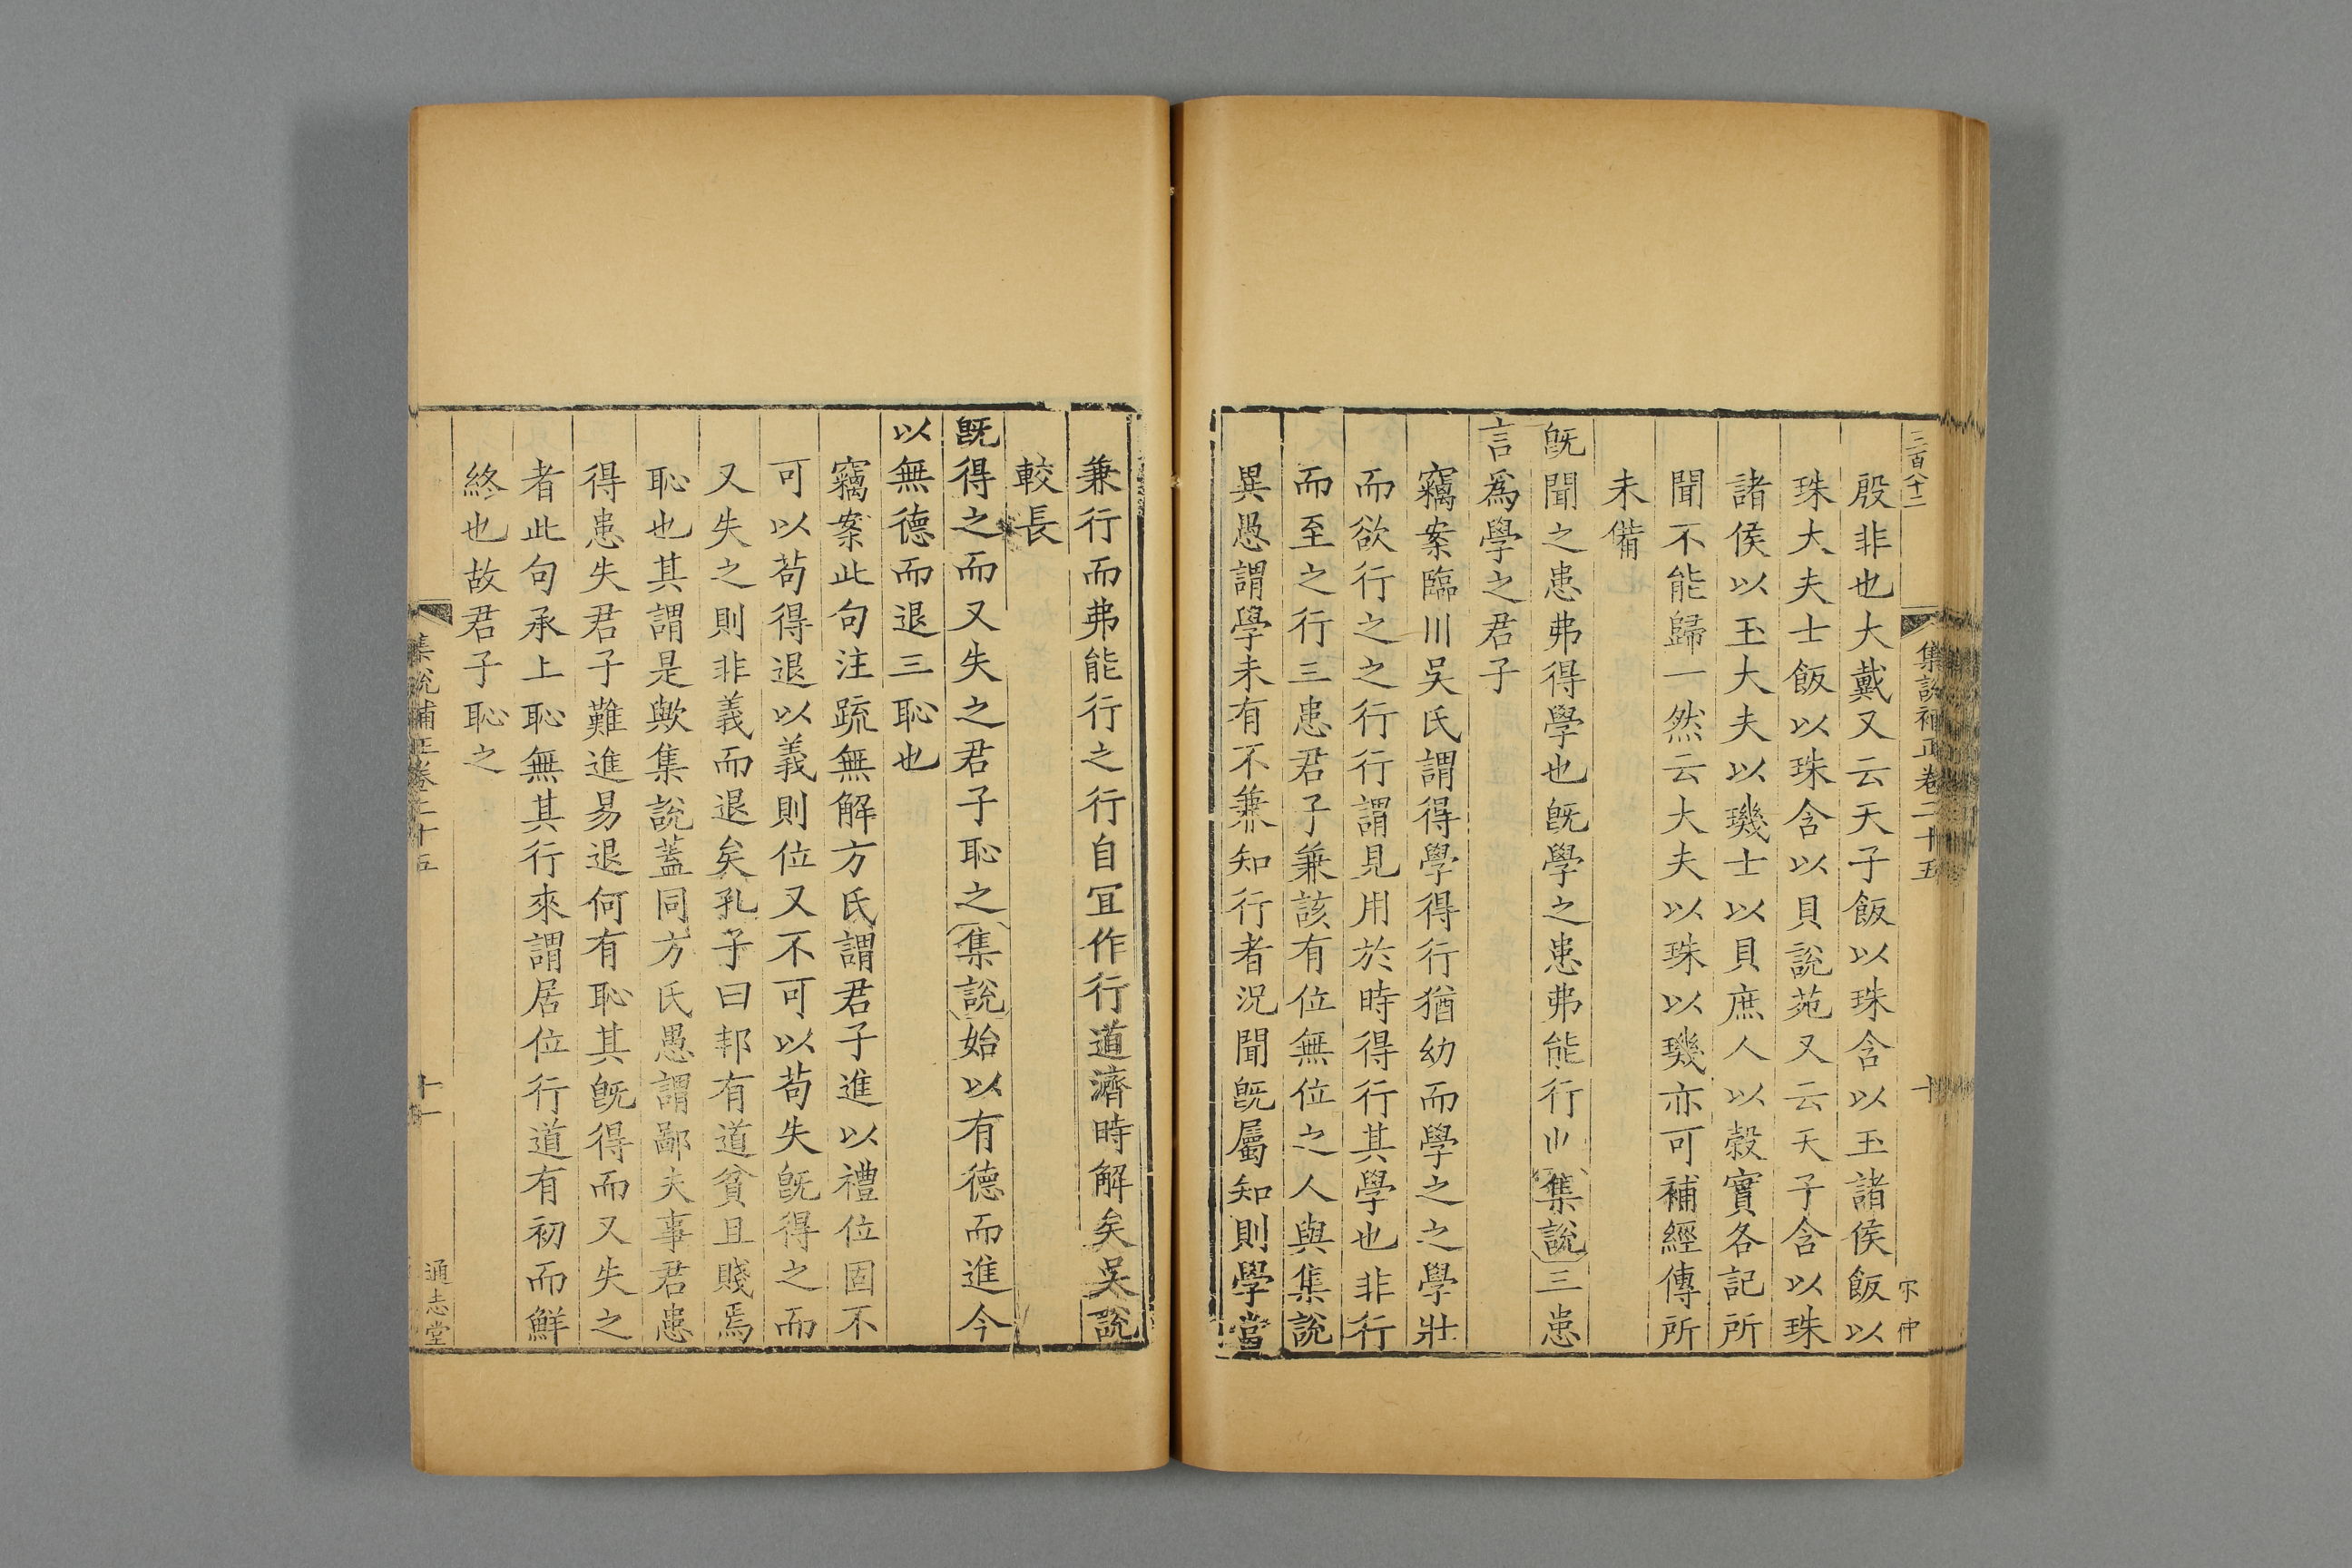 三百八十二
集說補正卷二十五
十
宗仲
殷非也大戴又云天子飯以珠含以玉諸侯飯以
珠大夫士飯以珠含以貝說苑又云天子含以珠
諸侯以玉大夫以璣士以貝庶人以穀實各記所
聞不能歸一然云大夫以珠以璣亦可補經傳所
未備
旣聞之患弗得學也旣學之患弗能行也集說三患
言爲學之君子
竊案臨川吳氏謂得學得行猶幼而學之之學壯
而欲行之之行行謂見用於時得行其學也非行
而至之行三患君子兼該有位無位之人與集說
異愚謂學未有不兼知行者況聞旣屬知則學當
兼行而弗能行之行自宜作行道濟時解矣吳說
較長
旣得之而又失之君子恥之集說始以有德而進今
以無德而退三恥也
竊案此句注疏無解方氏謂君子進以禮位固不
可以苟得退以義則位又不可以苟失旣得之而
又失之則非義而退矣孔子曰邦有道貧且賤焉
恥也其謂是歟集說蓋同方氏愚謂鄙夫事君患
得患失君子難進易退何有恥其旣得而又失之
者此句承上恥無其行來謂居位行道有初而鮮
終也故君子恥之
集說補正卷二十五
十一
通志堂